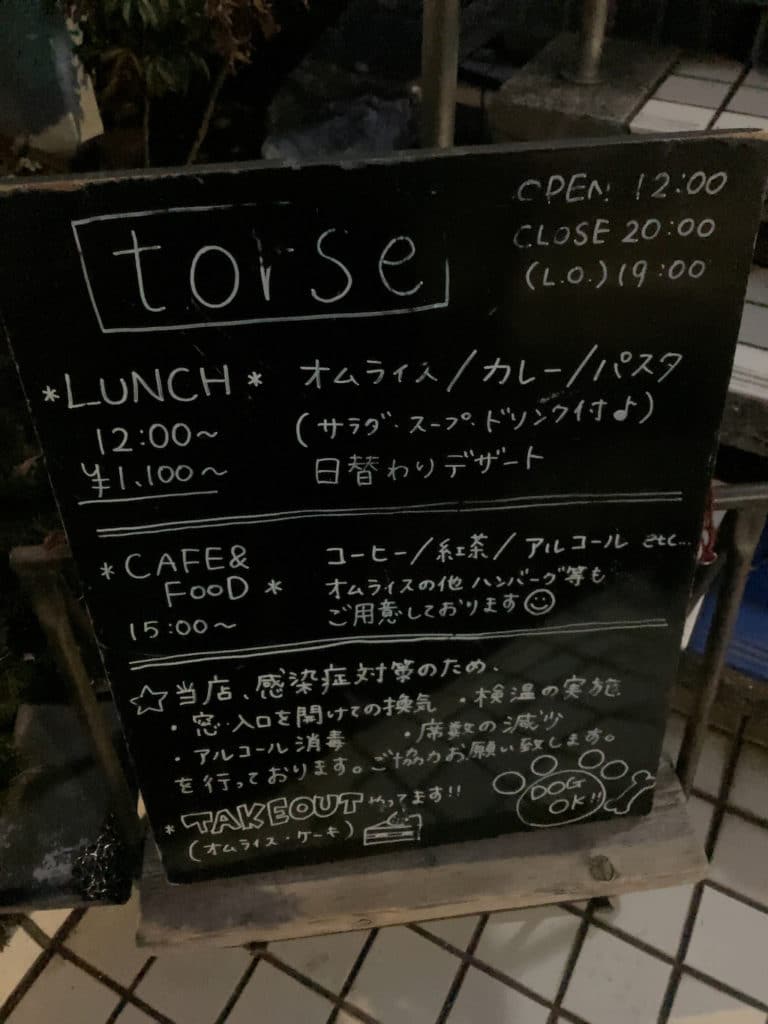 torse
OPEN 12:00
CLOSE 20:00
(L.O.) 19:00
*LUNCH* オムライス/カレー/パスタ
12:00~ (サラダ・スープ・ドリンク付♪)
¥1,100~ 日替わりデザート
*CAFE& コーヒー/紅茶/アルコール etc...
FOOD* オムライスの他 ハンバーグ等も
15:00~ ご用意しております☺
☆当店、感染症対策のため、
・窓・入口を開けての換気 ・検温の実施
・アルコール消毒 ・席数の減少
を行っております。ご協力お願い致します。
*TAKEOUTやってます!!
(オムライス・ケーキ)
DOG
OK!!